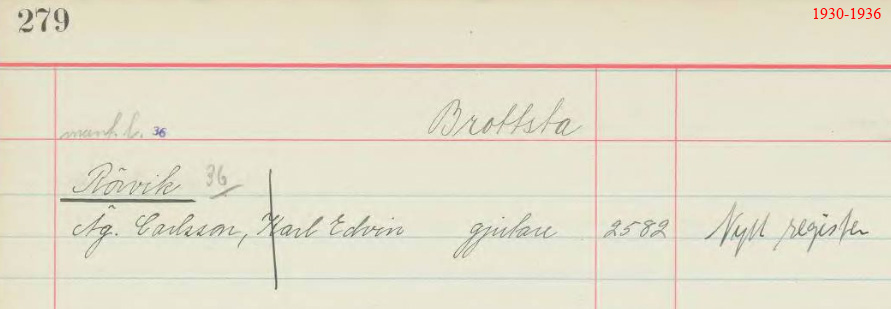 279
1930-1936
mant. l. 36
Brottsta
Rörvik 36
Äg. Carlsson, Karl Edvin gjutare 2582 Nytt register